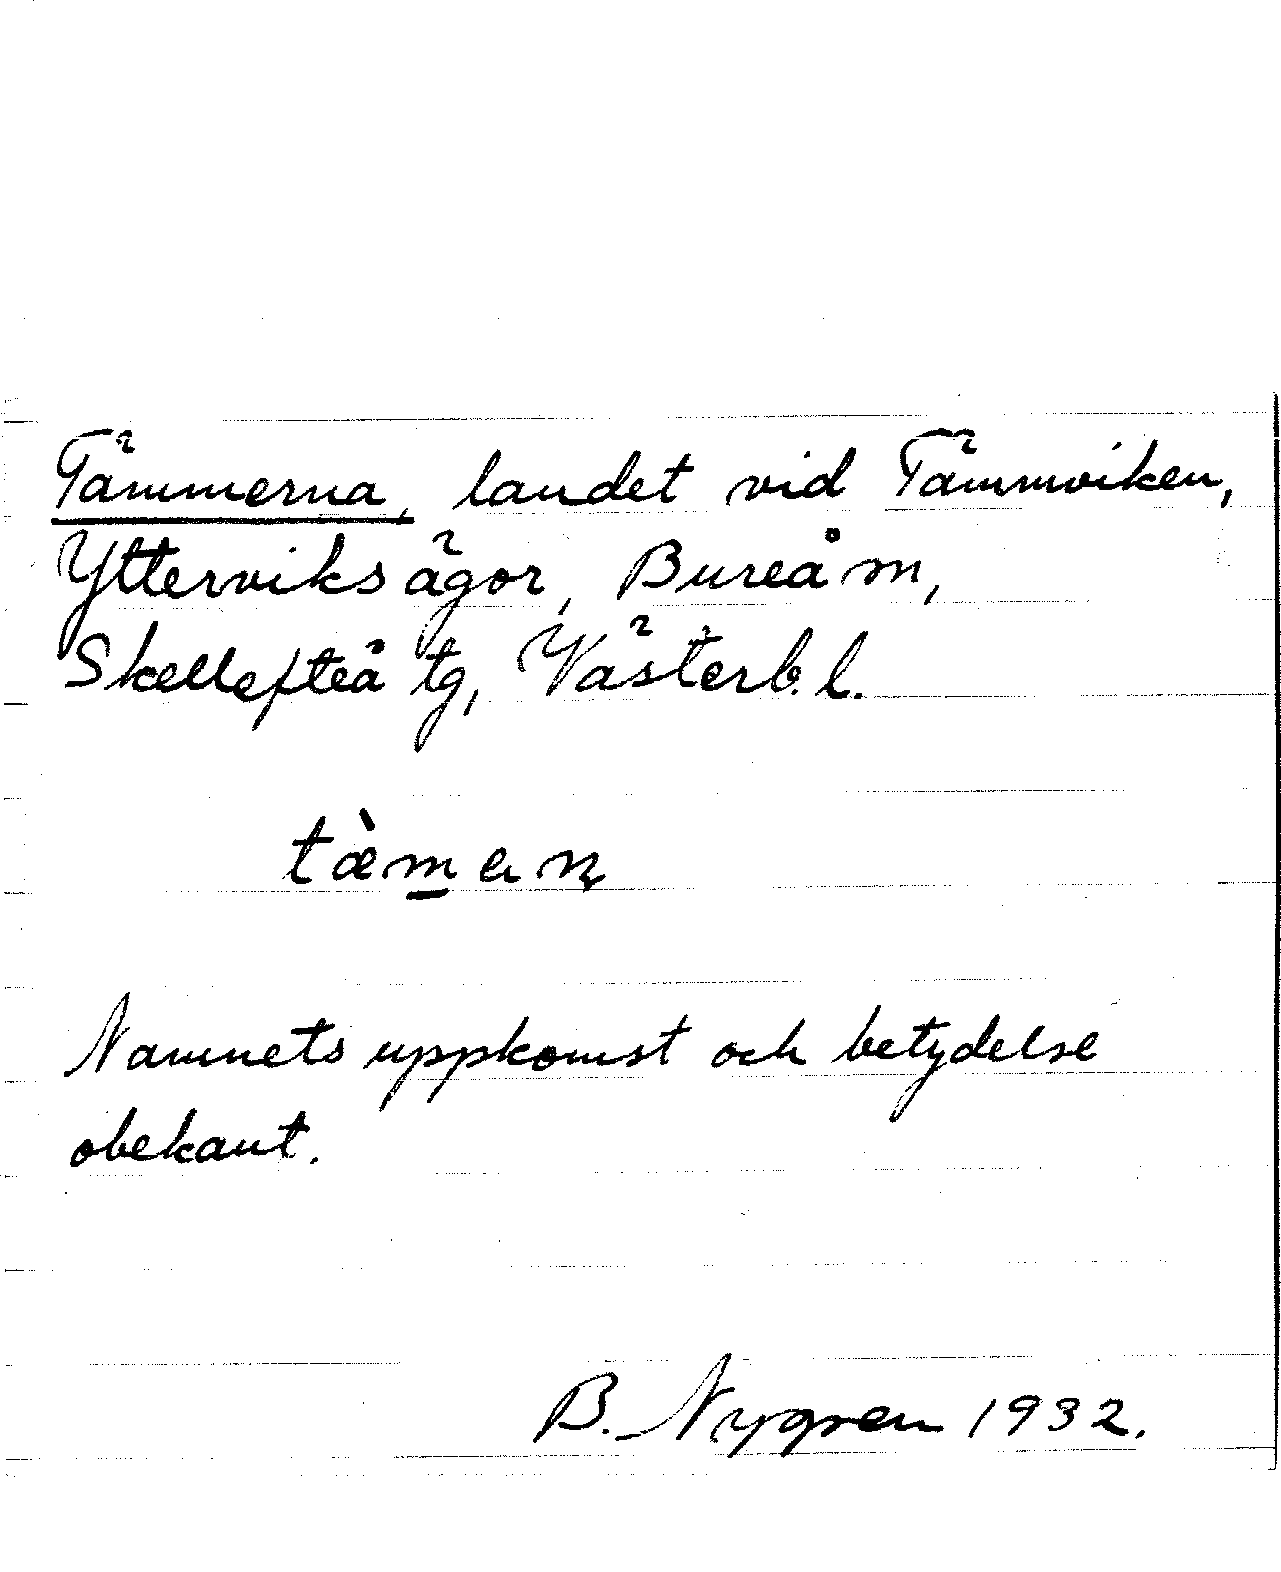 Tämmerna, landet vid Tämmviken,
Ytterviks ägor, Bureå m,
Skellefteå tg, Västerb. l.
tæ̀m̲an̥
Namnets uppkomst och betydelse
obekant.
B. Nygren 1932.